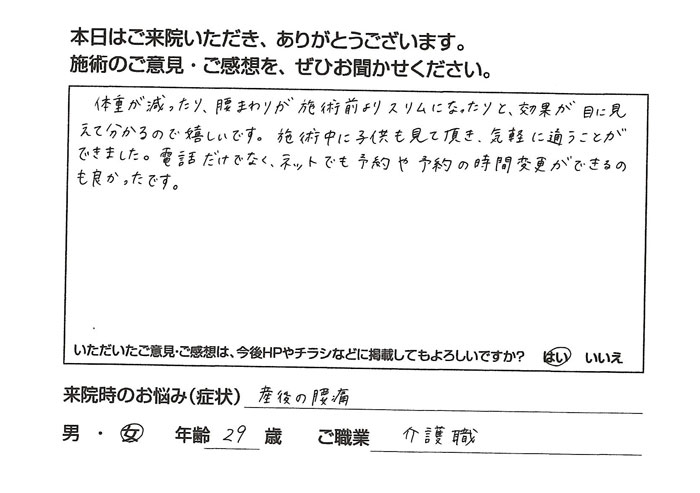 本日はご来院いただき、ありがとうございます。
施術のご意見・ご感想を、ぜひお聞かせください。
体重が減ったり、腰まわりが施術前よりスリムになったりと、効果が目に見
えて分かるので嬉しいです。施術中に子供も見て頂き、気軽に通うことが
できました。電話だけでなく、ネットでも予約や予約の時間変更ができるの
も良かったです。
いただいたご意見・ご感想は、今後HPやチラシなどに掲載してもよろしいですか? はい いいえ
来院時のお悩み(症状) 産後の腰痛
男・女 年齢 29 歳 ご職業 介護職